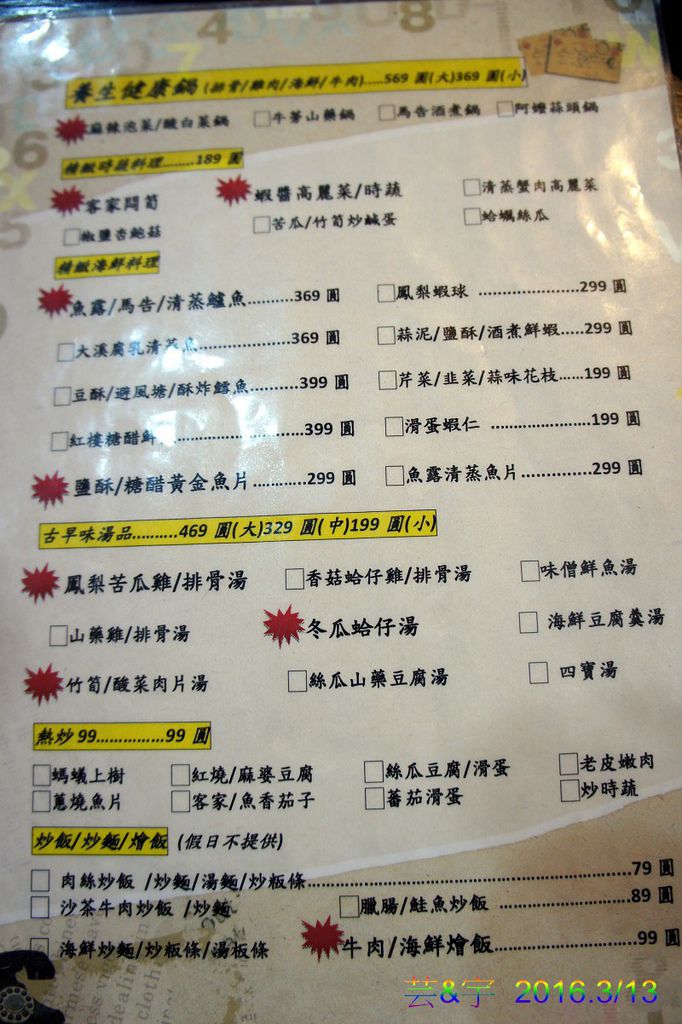 養生健康鍋 (排骨/雞肉/海鮮/牛肉).....569 圓(大)369 圓(小)
麻辣泡菜/酸白菜鍋 □牛蒡山藥鍋 □馬告酒煮鍋 □阿嬤蒜頭鍋
精緻時蔬料理........189 圓
客家悶筍 蝦醬高麗菜/時蔬 □清蒸蟹肉高麗菜
□椒鹽杏鮑菇 □苦瓜/竹筍炒鹹蛋 □蛤蠣絲瓜
精緻海鮮料理
魚露/馬告/清蒸鱸魚..........369 圓 □鳳梨蝦球 ...................299 圓
□大溪腐乳清蒸魚....................369 圓 □蒜泥/鹽酥/酒煮鮮蝦.....299 圓
□豆酥/避風塘/酥炸鱈魚..........399 圓 □芹菜/韭菜/蒜味花枝......199 圓
□紅樓糖醋鮮....................399 圓 □滑蛋蝦仁 ...................199 圓
鹽酥/糖醋黃金魚片............299 圓 □魚露清蒸魚片..............299 圓
古早味湯品..........469 圓(大)329 圓(中)199 圓(小)
鳳梨苦瓜雞/排骨湯 □香菇蛤仔雞/排骨湯 □味僧鮮魚湯
□山藥雞/排骨湯 冬瓜蛤仔湯 □海鮮豆腐羹湯
竹筍/酸菜肉片湯 □絲瓜山藥豆腐湯 □四寶湯
熱炒 99...............99 圓
□螞蟻上樹 □紅燒/麻婆豆腐 □絲瓜豆腐/滑蛋 □老皮嫩肉
□蔥燒魚片 □客家/魚香茄子 □蕃茄滑蛋 □炒時蔬
炒飯/炒麵/燴飯 (假日不提供)
□肉絲炒飯 /炒麵/湯麵/炒粄條..........................................................79 圓
□沙茶牛肉炒飯 /炒麵 □臘腸/鮭魚炒飯 .......................89 圓
□海鮮炒麵/炒粄條/湯板條 牛肉/海鮮燴飯........................99 圓
芸&宇 2016.3/13